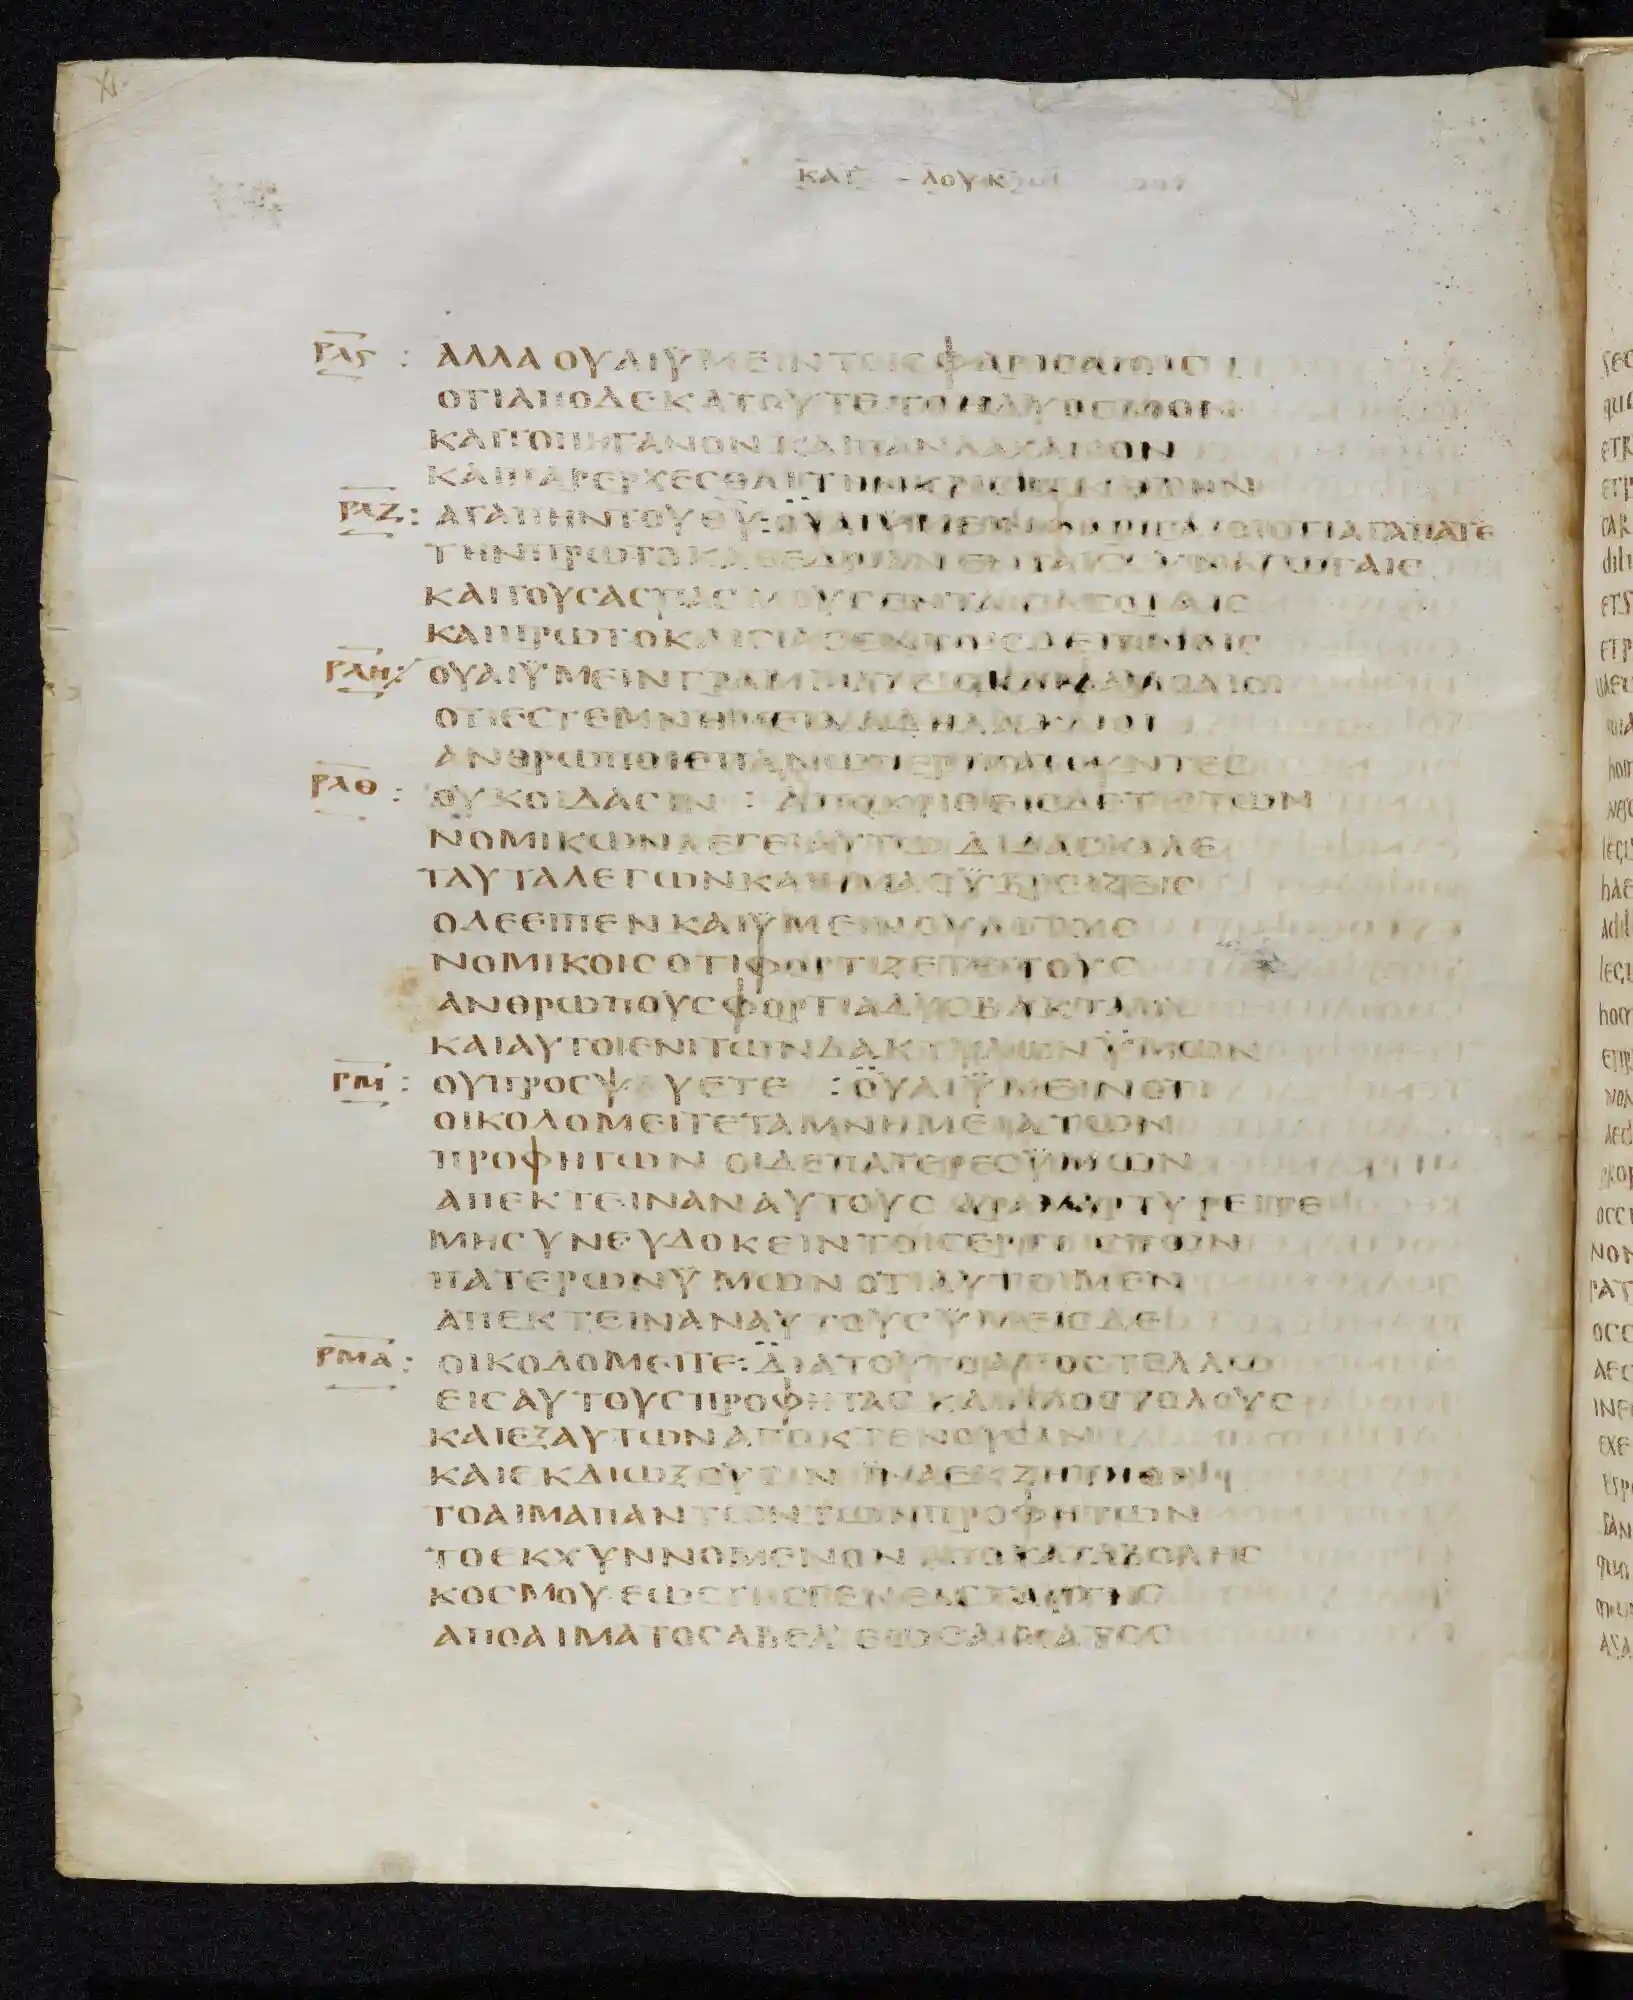 ΚΑΤ ΛΟΥΚ
ΡΛϚ : ΑΛΛΑ ΟΥΑΙΫΜΕΙΝΤΟΙϹΦΑΡΙϹΑΙΟΙϹ
ΟΤΙΑΠΟΔΕΚΑΤΟΥΤΕΤΟΗΔΥΟϹΜΟΝ
ΚΑΙΤΟΠΗΓΑΝΟΝΚΑΙΠΑΝΛΑΧΑΝΟΝ
ΚΑΙΠΑΡΕΡΧΕϹΘΑΙΤΗΝΚΡΙϹΙΝΚΑΙΤΗΝ
ΡΛΖ : ΑΓΑΠΗΝΤΟΥΘ̅Υ̅ : ΟΥΑΙΫΜΕΙΝΦΑΡΙϹΑΙΟΙΟΤΙΑΓΑΠΑΤΕ
ΤΗΝΠΡΩΤΟΚΑΘΕΔΡΙΑΝΕΝΤΑΙϹϹΥΝΑΓΩΓΑΙϹ
ΚΑΙΤΟΥϹΑϹΠΑϹΜΟΥϹΕΝΤΑΙϹΑΓΟΡΑΙϹ
ΚΑΙΠΡΩΤΟΚΛΙϹΙΑϹΕΝΤΟΙϹΔΕΙΠΝΟΙϹ
ΡΛΗ : ΟΥΑΙΫΜΕΙΝΓΡΑΜΜΑΤΕΙϹΚΑΙΦΑΡΙϹΑΙΟΙ
ΟΤΙΕϹΤΕΜΝΗΜΕΙΑΑΔΗΛΑΚΑΙΟΙ
ΑΝΘΡΩΠΟΙΕΠΑΝΩΠΕΡΙΠΑΤΟΥΝΤΕϹ
ΡΛΘ : ΟΥΚΟΙΔΑϹΙΝ : ΑΠΟΚΡΙΘΕΙϹΔΕΤΙϹΤΩΝ
ΝΟΜΙΚΩΝΛΕΓΕΙΑΥΤΩΔΙΔΑϹΚΑΛΕ
ΤΑΥΤΑΛΕΓΩΝΚΑΙΗΜΑϹΫΒΡΕΙΖΕΙϹ
ΟΔΕΕΙΠΕΝΚΑΙΫΜΕΙΝΟΥΑΙΤΟΙϹ
ΝΟΜΙΚΟΙϹΟΤΙΦΟΡΤΙΖΕΤΕΤΟΥϹ
ΑΝΘΡΩΠΟΥϹΦΟΡΤΙΑΔΥϹΒΑΚΤΑΚΤΑ
ΚΑΙΑΥΤΟΙΕΝΙΤΩΝΔΑΚΤΥΛΩΝΫΜΩΝ
ΡΜ : ΟΥΠΡΟϹΨΑΥΕΤΕ : ΟΥΑΙΫΜΕΙΝΟΤΙ
ΟΙΚΟΔΟΜΕΙΤΕΤΑΜΝΗΜΕΙΑΤΩΝ
ΠΡΟΦΗΤΩΝΟΙΔΕΠΑΤΕΡΕϹΫΜΩΝ
ΑΠΕΚΤΕΙΝΑΝΑΥΤΟΥϹΑΡΑΜΑΡΤΥΡΕΙΤΕ
ΜΗϹΥΝΕΥΔΟΚΕΙΝΤΟΙϹΕΡΓΟΙϹΤΩΝ
ΠΑΤΕΡΩΝΫΜΩΝΟΤΙΑΥΤΟΙΜΕΝ
ΑΠΕΚΤΕΙΝΑΝΑΥΤΟΥϹΫΜΕΙϹΔΕ
ΡΜΑ : ΟΙΚΟΔΟΜΕΙΤΕ : ΔΙΑΤΟΥΤΟΑΠΟϹΤΕΛΛΩ
ΕΙϹΑΥΤΟΥϹΠΡΟΦΗΤΑϹΚΑΙΑΠΟϹΤΟΛΟΥϹ
ΚΑΙΕΞΑΥΤΩΝΑΠΟΚΤΕΝΟΥϹΙΝ
ΚΑΙΕΚΔΙΩΞΟΥϹΙΝΪΝΑΕΚΖΗΤΗΘΗ
ΤΟΑΙΜΑΠΑΝΤΩΝΤΩΝΠΡΟΦΗΤΩΝ
ΤΟΕΚΧΥΝΝΟΜΕΝΟΝΑΠΟΚΑΤΑΒΟΛΗϹ
ΚΟϹΜΟΥΕΩϹΤΗϹΓΕΝΕΑϹΤΑΥΤΗϹ
ΑΠΟΑΙΜΑΤΟϹΑΒΕΛΕΩϹΑΙΜΑΤΟϹ